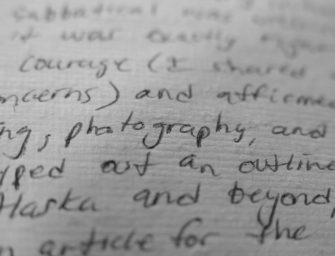 sabbatical
it was exactly
courage (I shared
ncerns) and affirme
ng, photography, and
yped out an outline
Alaska and beyond,
n article for the